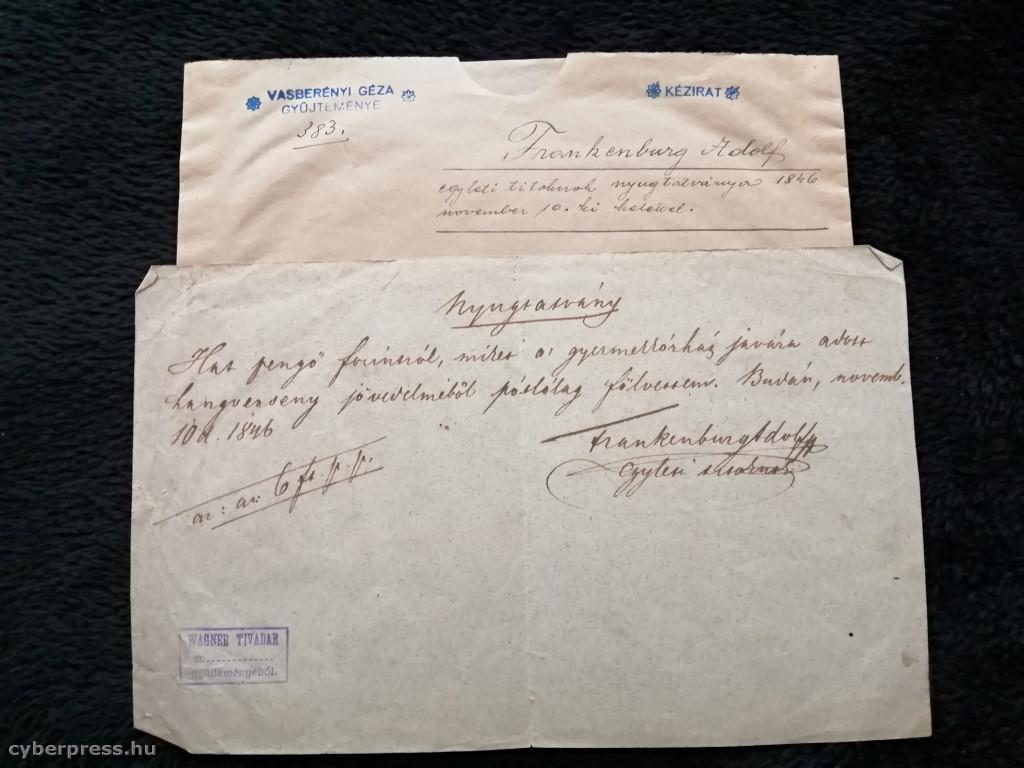 VASBERÉNYI GÉZA
GYŰJTEMÉNYE
383.
KÉZIRAT
Frankenburg Adolf
egyleti titoknok nyugtatványa 1846
november 10.-ki kelettel.
Nyugtatvány
Hat pengő forintról, mitet a' gyermekkórház javára adott
hangverseny jövedelméből pótlólag fölvettem. Budán, novemb.
10d. 1846
Frankenburg Adolf
egyleti titoknok
az: az: 6 ft p.p.
WAGNER TIVADAR
gyűjteményéből.
cyberpress.hu